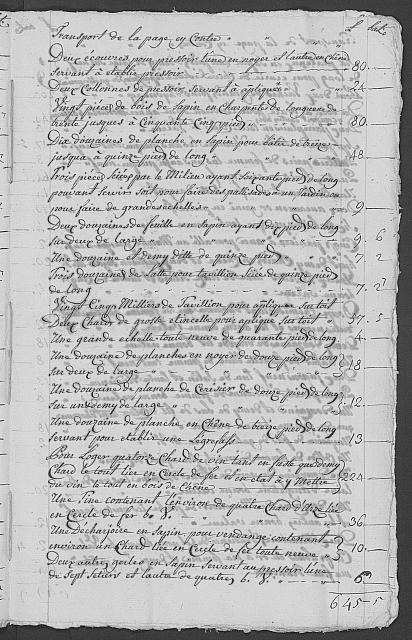 L. bats
Transport de la page cy Contre " " "
Deux écouvres pour pressoir l'une en noyer et l'autre en chêne
servant à établir pressoir " " 80.
Deux Collonnes de pressoir servant à apliquer " 24
Vingt pieces de bois de Sapin en Charpente de longueur de
trente jusques à Cinquante Cinq pieds " 80.
Dix douzaines de planche en Sapin pour latte de treize
jusqu'à quinze pieds de long " " 48.
Trois pieces Sciée par le Milieu ayant Soixante pieds de long
pouvant servir soit pour faire des pallissades à un Jardin ou
pour faire de grandes échelles " " 9
Deux douzaines de feuille en Sapin ayant dix pieds de long
sur deux de large " " 9 6
Une douzaine et demy ditte de quinze pieds " 7. 2
Trois douzaines de Latte pour Tavillion Sciée de quinze pieds
de long " " 7. 2
Vingt Cinq Milliers de Tavillion pour apliquer sur toit
Deux Chards de grosse etincelle pour aplique sur toit 37. 5
Une grande echelle toute neuve de quarante pieds de long 4
Une douzaine de planches en noyer de douze pieds de long
sur deux de large " " 18
Une douzaine de planche de Cerisier de douze pieds de long
sur un & demy de large " " 12.
Une douzaine de planche en Chêne de treize pieds de long
servant pour etablir une 13
Pour Loger quatorze Chard de vin tant en fuste que demy
Chard le tout lier en Cercle de fer et en etat à y Mettre
du vin le tout en bois de Chêne 224
Une Tine contenant l'environ de quatre Chard d'Uze lié
en Cercle de fer bo V. " " 36
Une décharjoire en Sapin pour vendange contenant
environ un Chard lier en Cercle de fer toute neuve 10.
Deux autres gerles en Sapin servant au pressoir l'une
de Sept Setiers et l'autre de quatre b. V. " 6
645-5